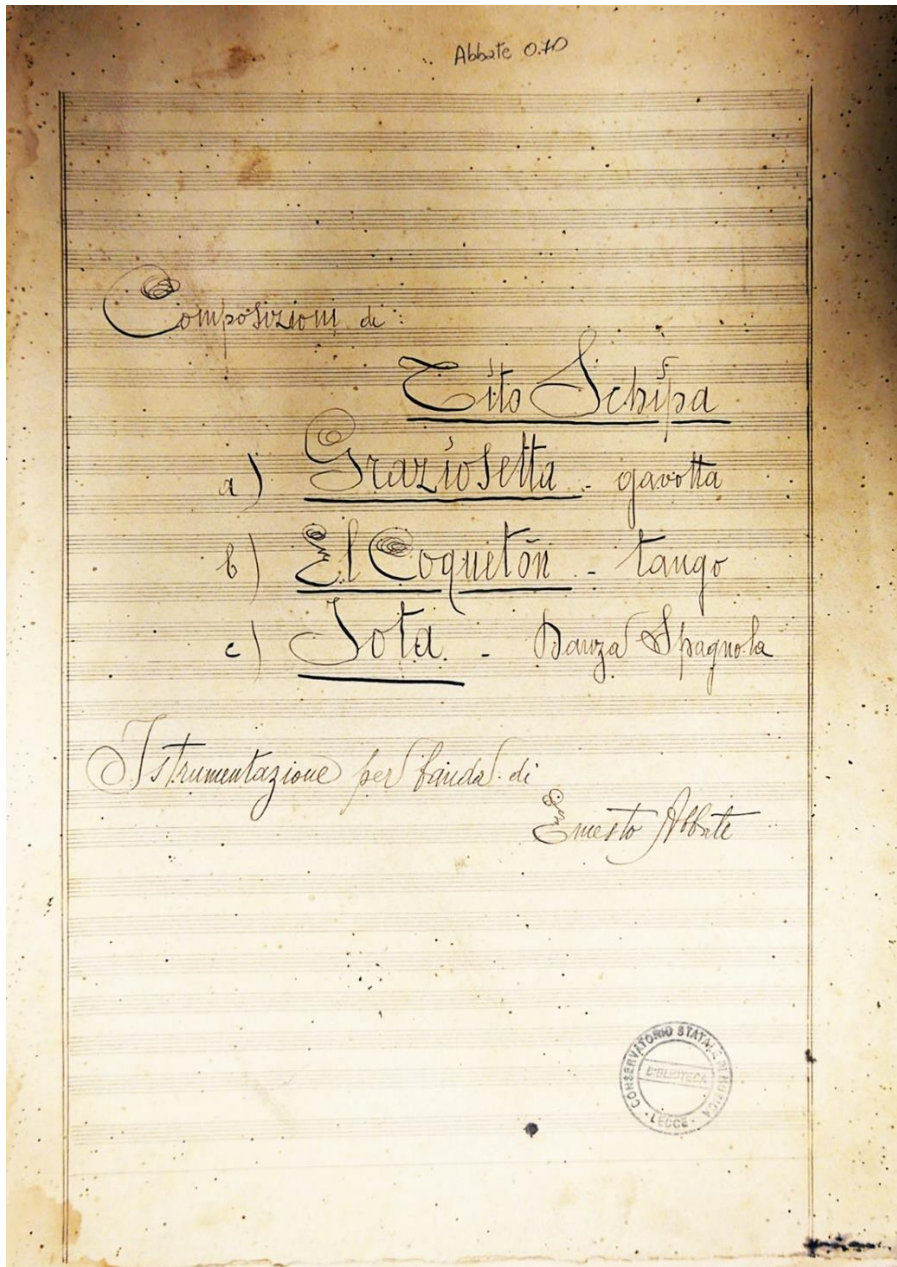 Abbate O.70
Composizioni di:
Tito Schipa
a) Graziosetta - gavotta
b) El Coquetón - tango
c) Jota - Danza Spagnola
Istrumentazione per banda di
Ernesto Abbate
CONSERVATORIO STATALE DI MUSICA
BIBLIOTECA
- LECCE -